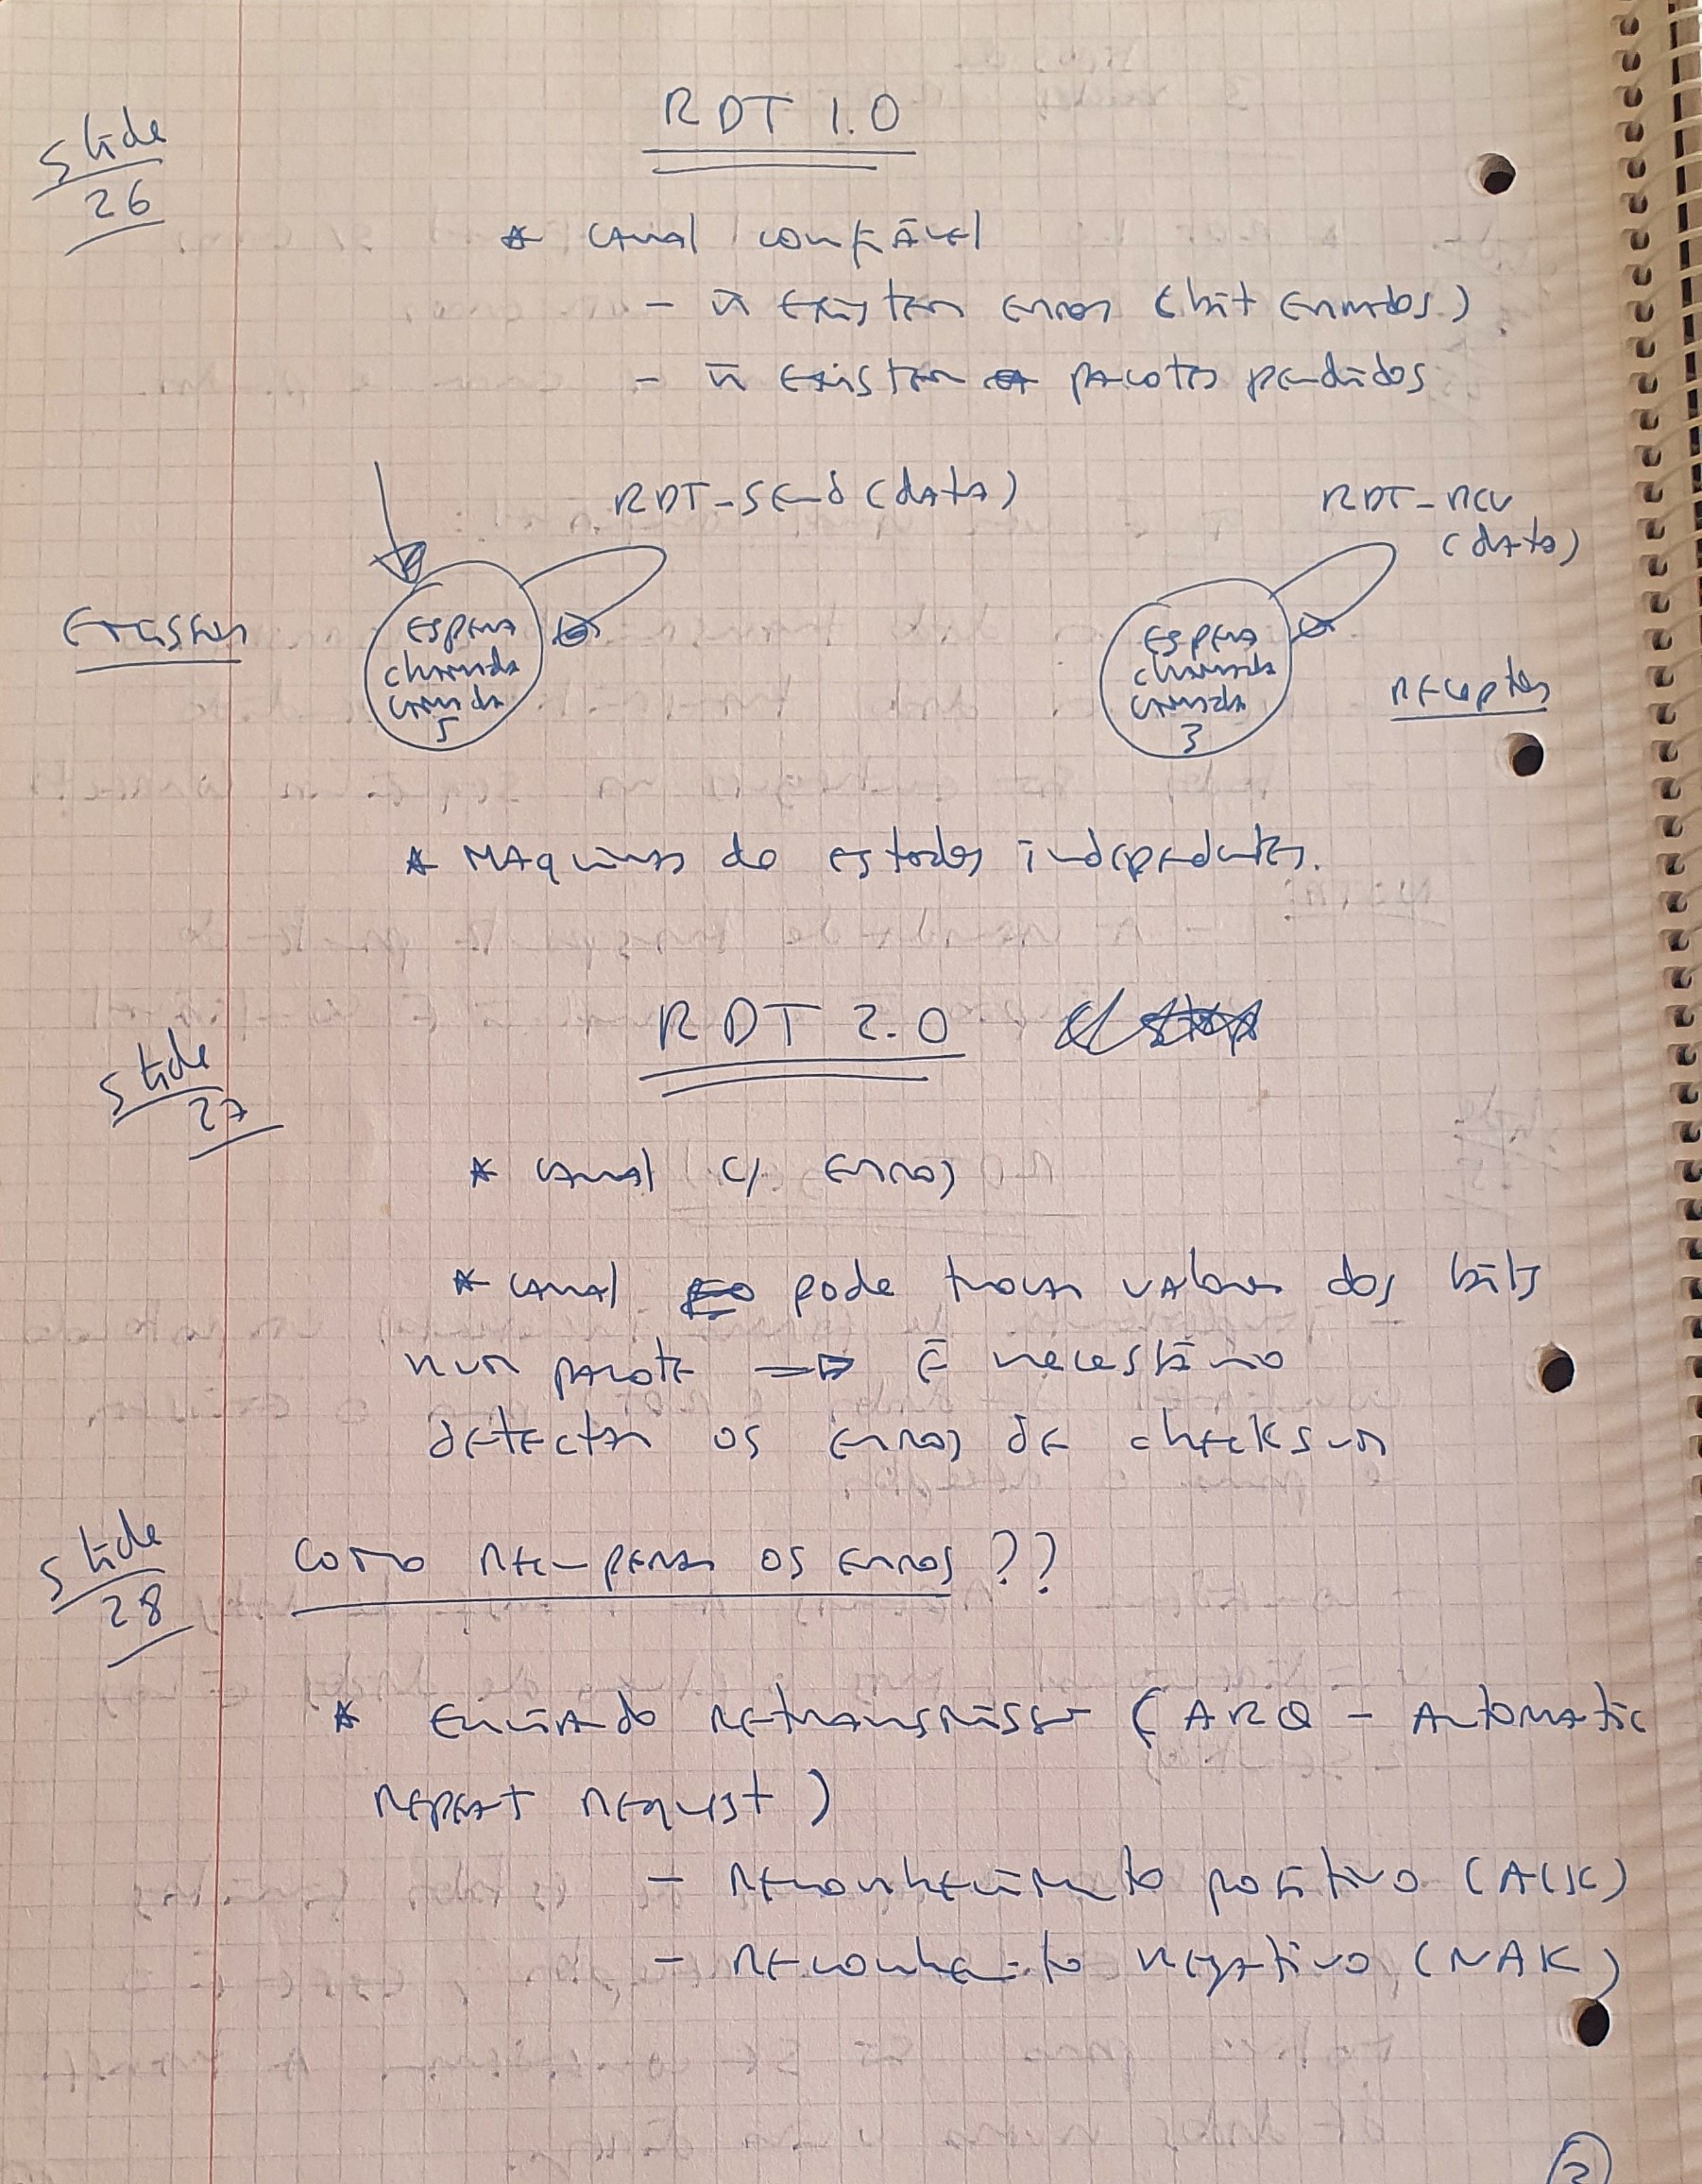 RDT 1.0
Slide
26
* canal confiável
- ñ existem erros (bit errados)
- ñ existem pacotes perdidos
RDT_send(data)
RDT_rcv
(data)
Emissor
espera
chamada
camada
5
espera
chamada
camada
3
receptor
* Maquinas de estados indepedentes.
RDT 2.0
Slide
27
* canal c/ erros
* canal pode trocar valores dos bits
num pacote => é necessário
detectar os erros de checksum
Slide
28
Como recuperar os erros ??
* Enviando retransmissão (ARQ - Automatic
repeat request)
- reconhecimento positivo (ACK)
- reconhecimento negativo (NAK)
3